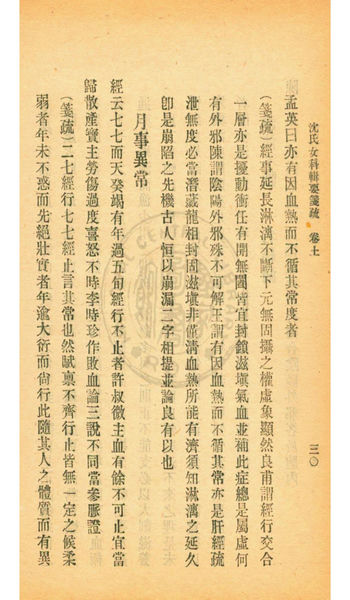 沈氏女科輯要箋疏 卷上 三〇
孟英曰亦有因血熱而不循其常度者
（箋疏）經事延長淋漓不斷下元無固攝之權虛象顯然良甫謂經行交合
一層亦是擾動衝任有開無闔皆宜封鎖滋塡氣血並補此症總是屬虛何
有外邪陳謂陰陽外邪殊不可解王謂有因血熱而不循其常亦是肝經疏
泄無度必當潛蟄龍相封固滋塡非僅淸血熱所能有濟須知淋漓之延久
卽是崩陷之先機古人恒以崩漏二字相提並論良有以也
月事異常
經云七七而天癸竭有年過五旬經行不止者許叔微主血有餘不可止宜當
歸散產寶主勞傷過度喜怒不時李時珍作敗血論三說不同當參脈證
（箋疏）二七經行七七經止言其常也然賦稟不齊行止皆無一定之候柔
弱者年未不惑而先絕壯實者年逾大衍而尙行此隨其人之體質而有異